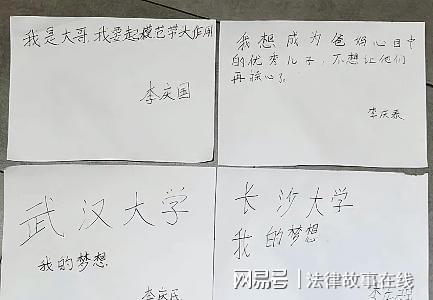 我是大哥,我要起模范带头作用
李庆国
我想成为爸妈心目中
的优秀儿子,不想让他们
再操心了。
李庆泰
武汉大学
我的梦想
李庆民
长沙大学
我的梦想
网易号 | 法律故事在线